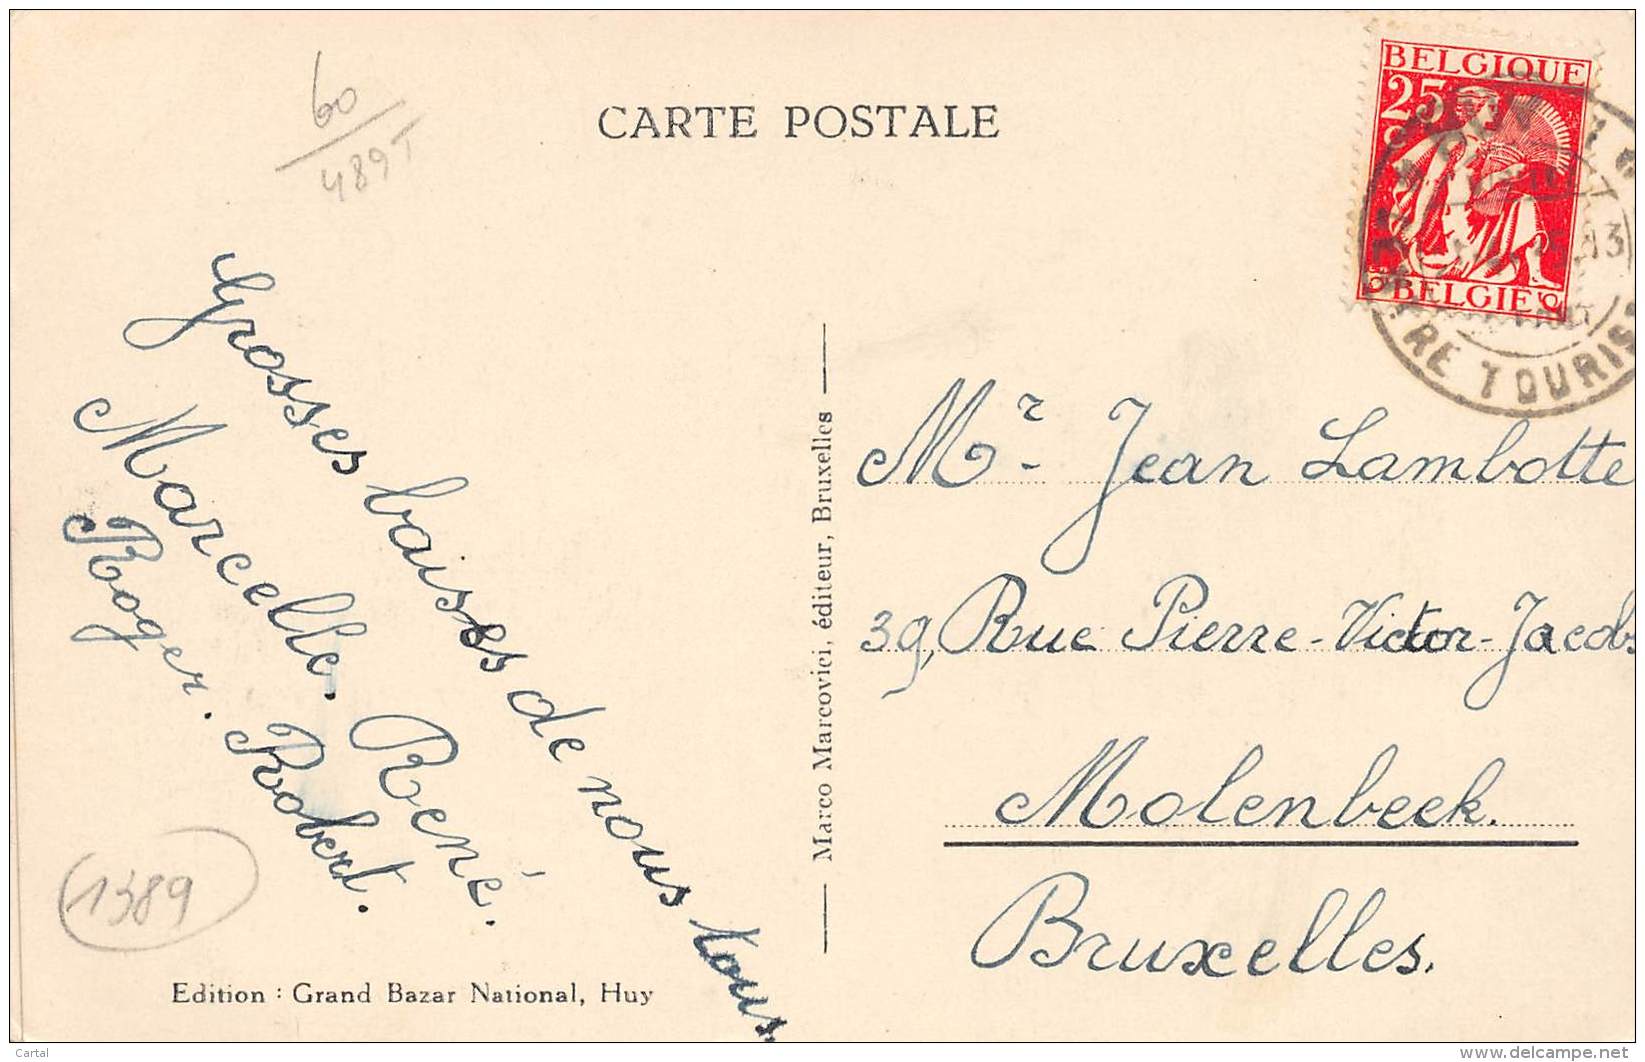 CARTE POSTALE
60/489T
BELGIQUE
25
BELGIË
RE TOURIS
Grosses baises de nous tous
Marcelle. René.
Roger. Robert.
1389
Edition : Grand Bazar National, Huy
Marco Marcovici, éditeur, Bruxelles
Mr. Jean Lambotte
39, Rue Pierre-Victor-Jacobs
Molenbeek.
Bruxelles.
Cartal
www.delcampe.net